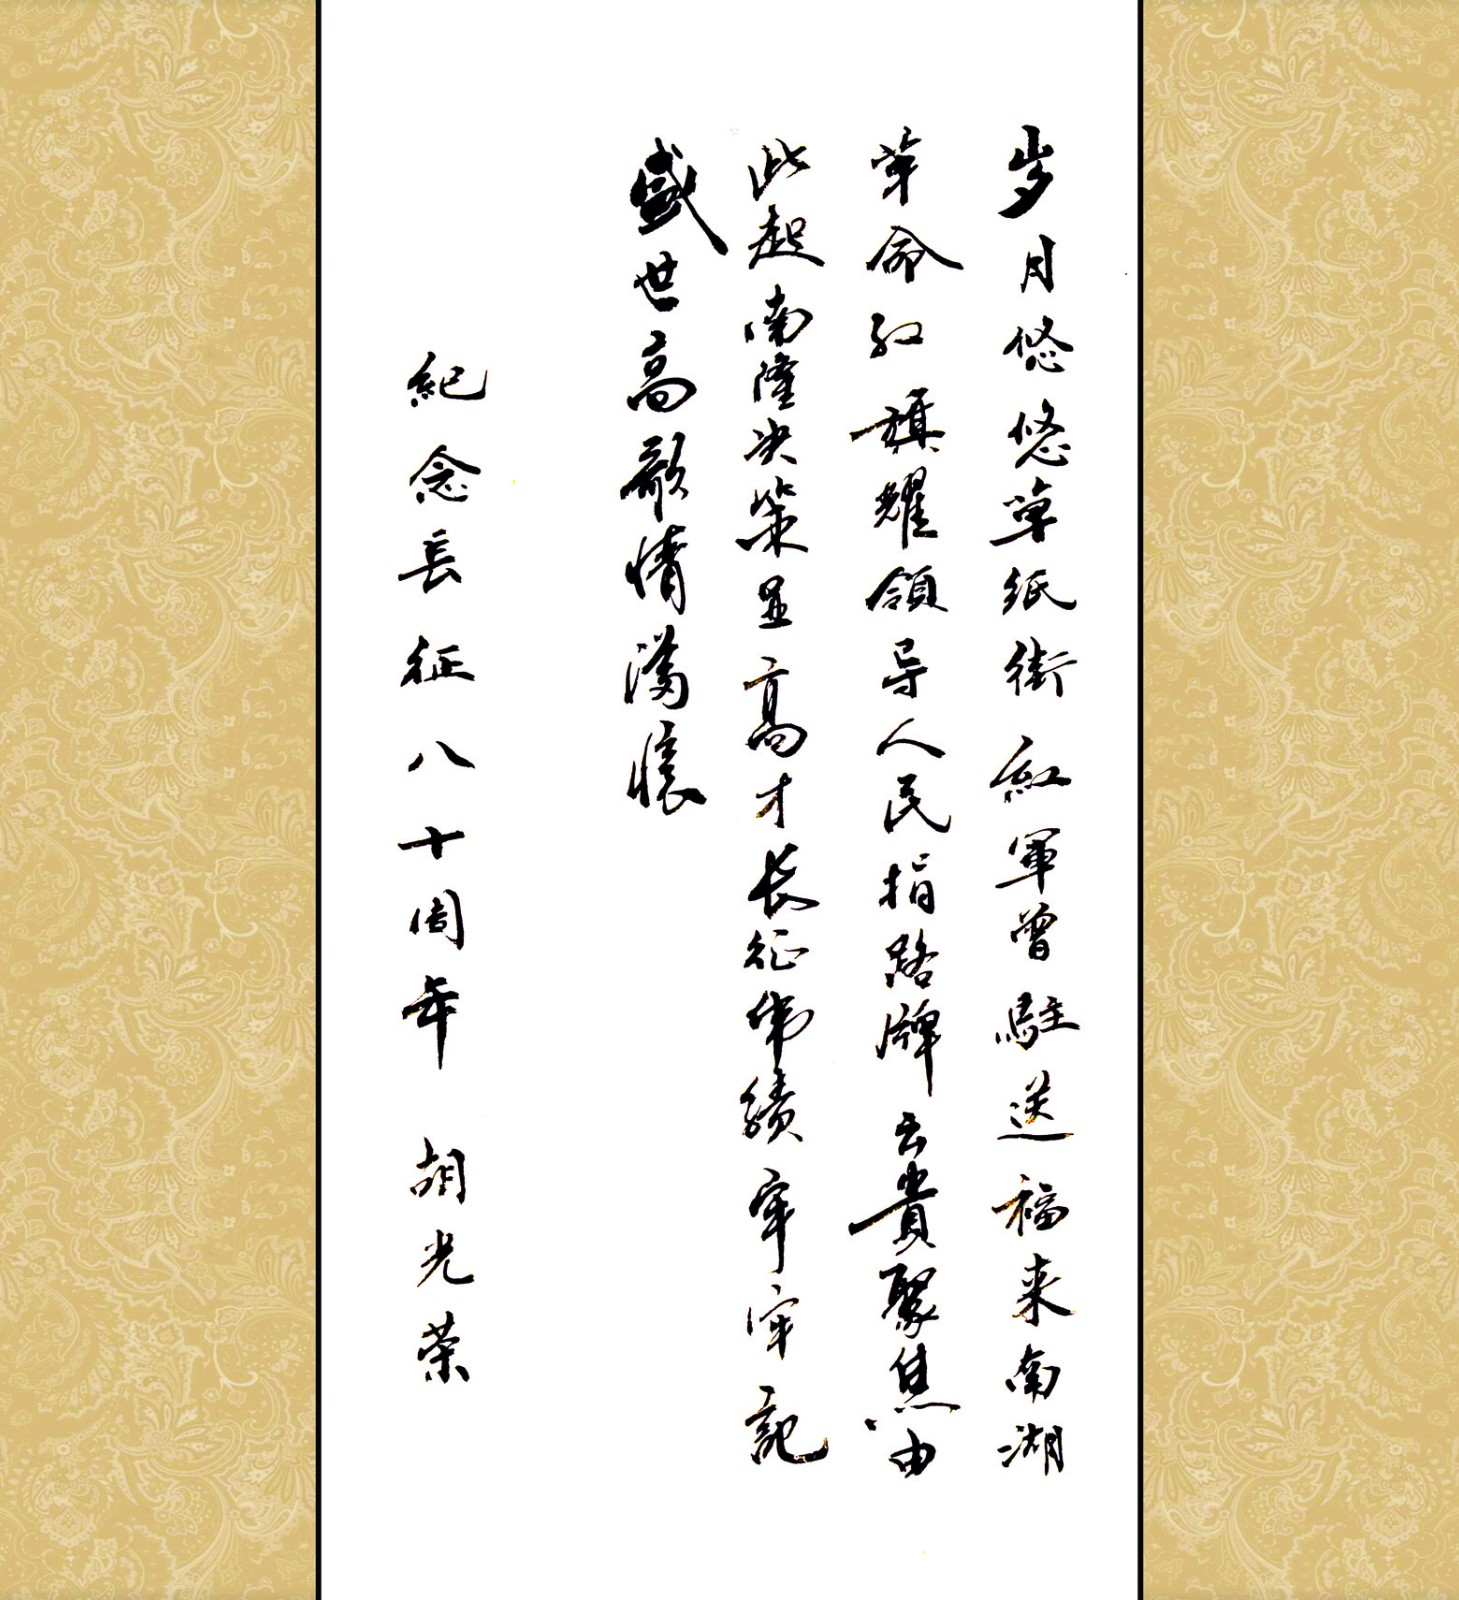 岁月悠悠草纸街紅軍曾駐送福来南湖
革命红旗耀领导人民指路牌云贵聚焦由
此起南隆决策显高才长征伟績牢牢記
盛世高歌情满懷
紀念長征八十周年 胡光荣